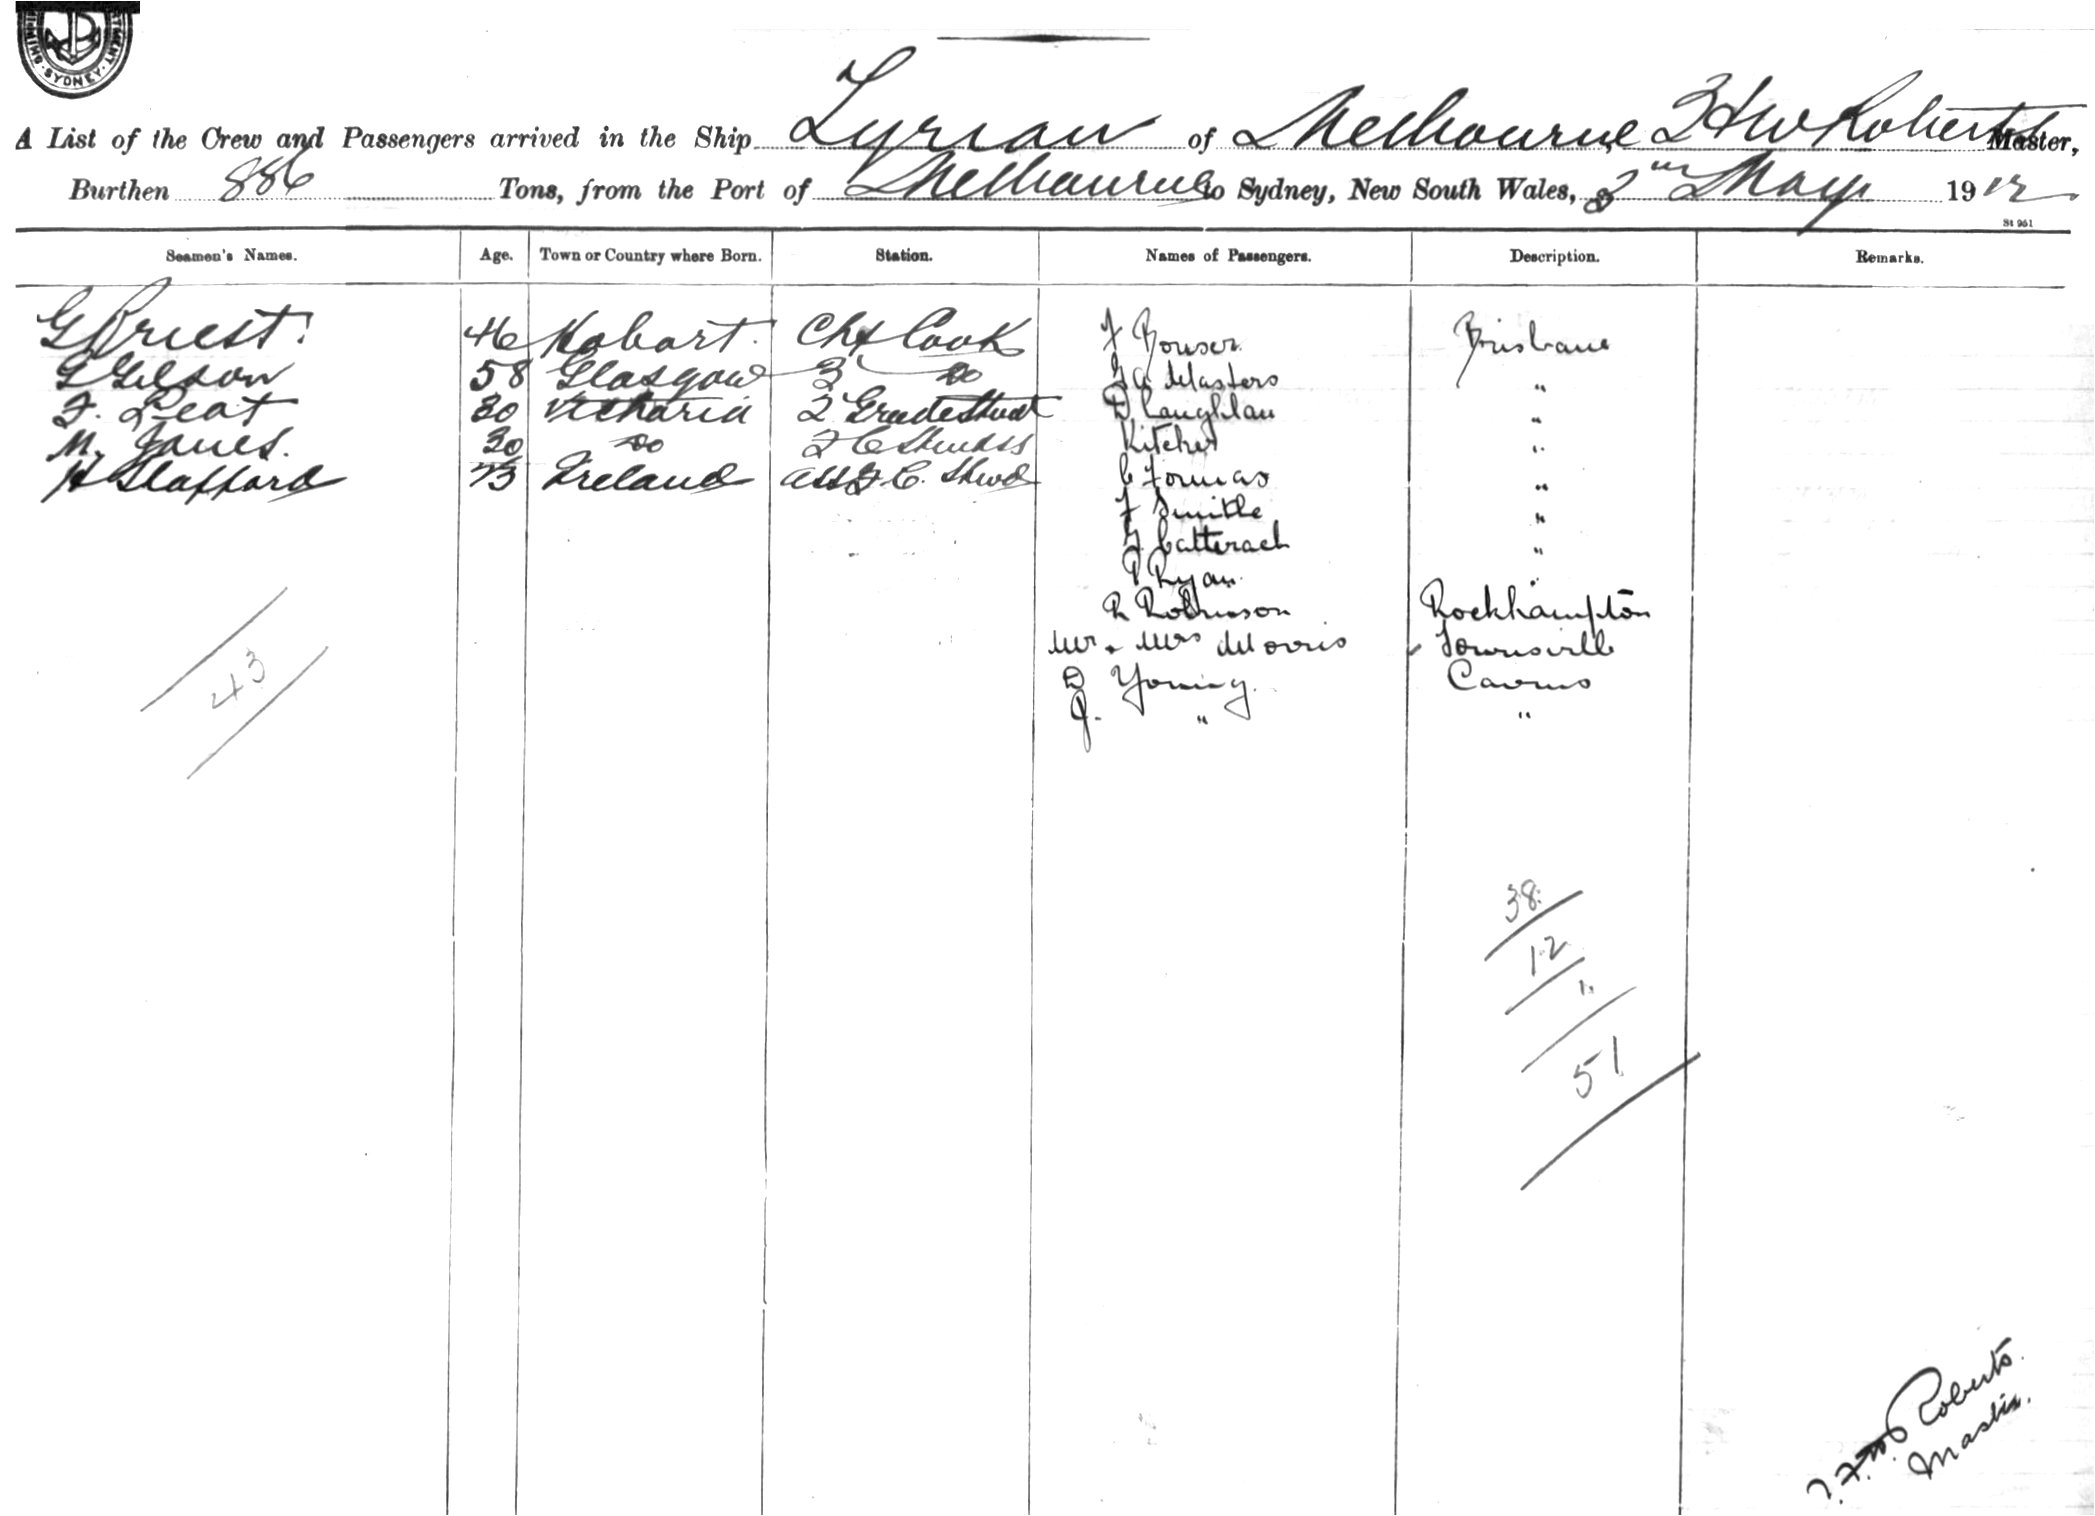 SYDNEY
A List of the Crew and Passengers arrived in the Ship Tyrian of Melbourne, Roberts Master,
Burthen 886 Tons, from the Port of Melbourne to Sydney, New South Wales, 2nd May 1912
St 961
Seamen's Names. Age. Town or Country where Born. Station. Names of Passengers. Description. Remarks.
G Priest. 46 Hobart. Chf Cook F Bowser Brisbane
G Gilson 58 Glasgow 3 do G A Masters "
F. Peat 30 Victoria 2 Grade Stwdt D Laughlan "
M. Jones. 30 do F C Stewdss Kitcher "
H Stafford 43 Ireland Asst F. C. Stwd C "
F Smith "
Catterach "
P Ryan "
R Robinson Rockhampton
Mr & Mrs Morris Townsville
D Young Cairns
J. " "
43
38
12
1.
51
Roberts.
Master.